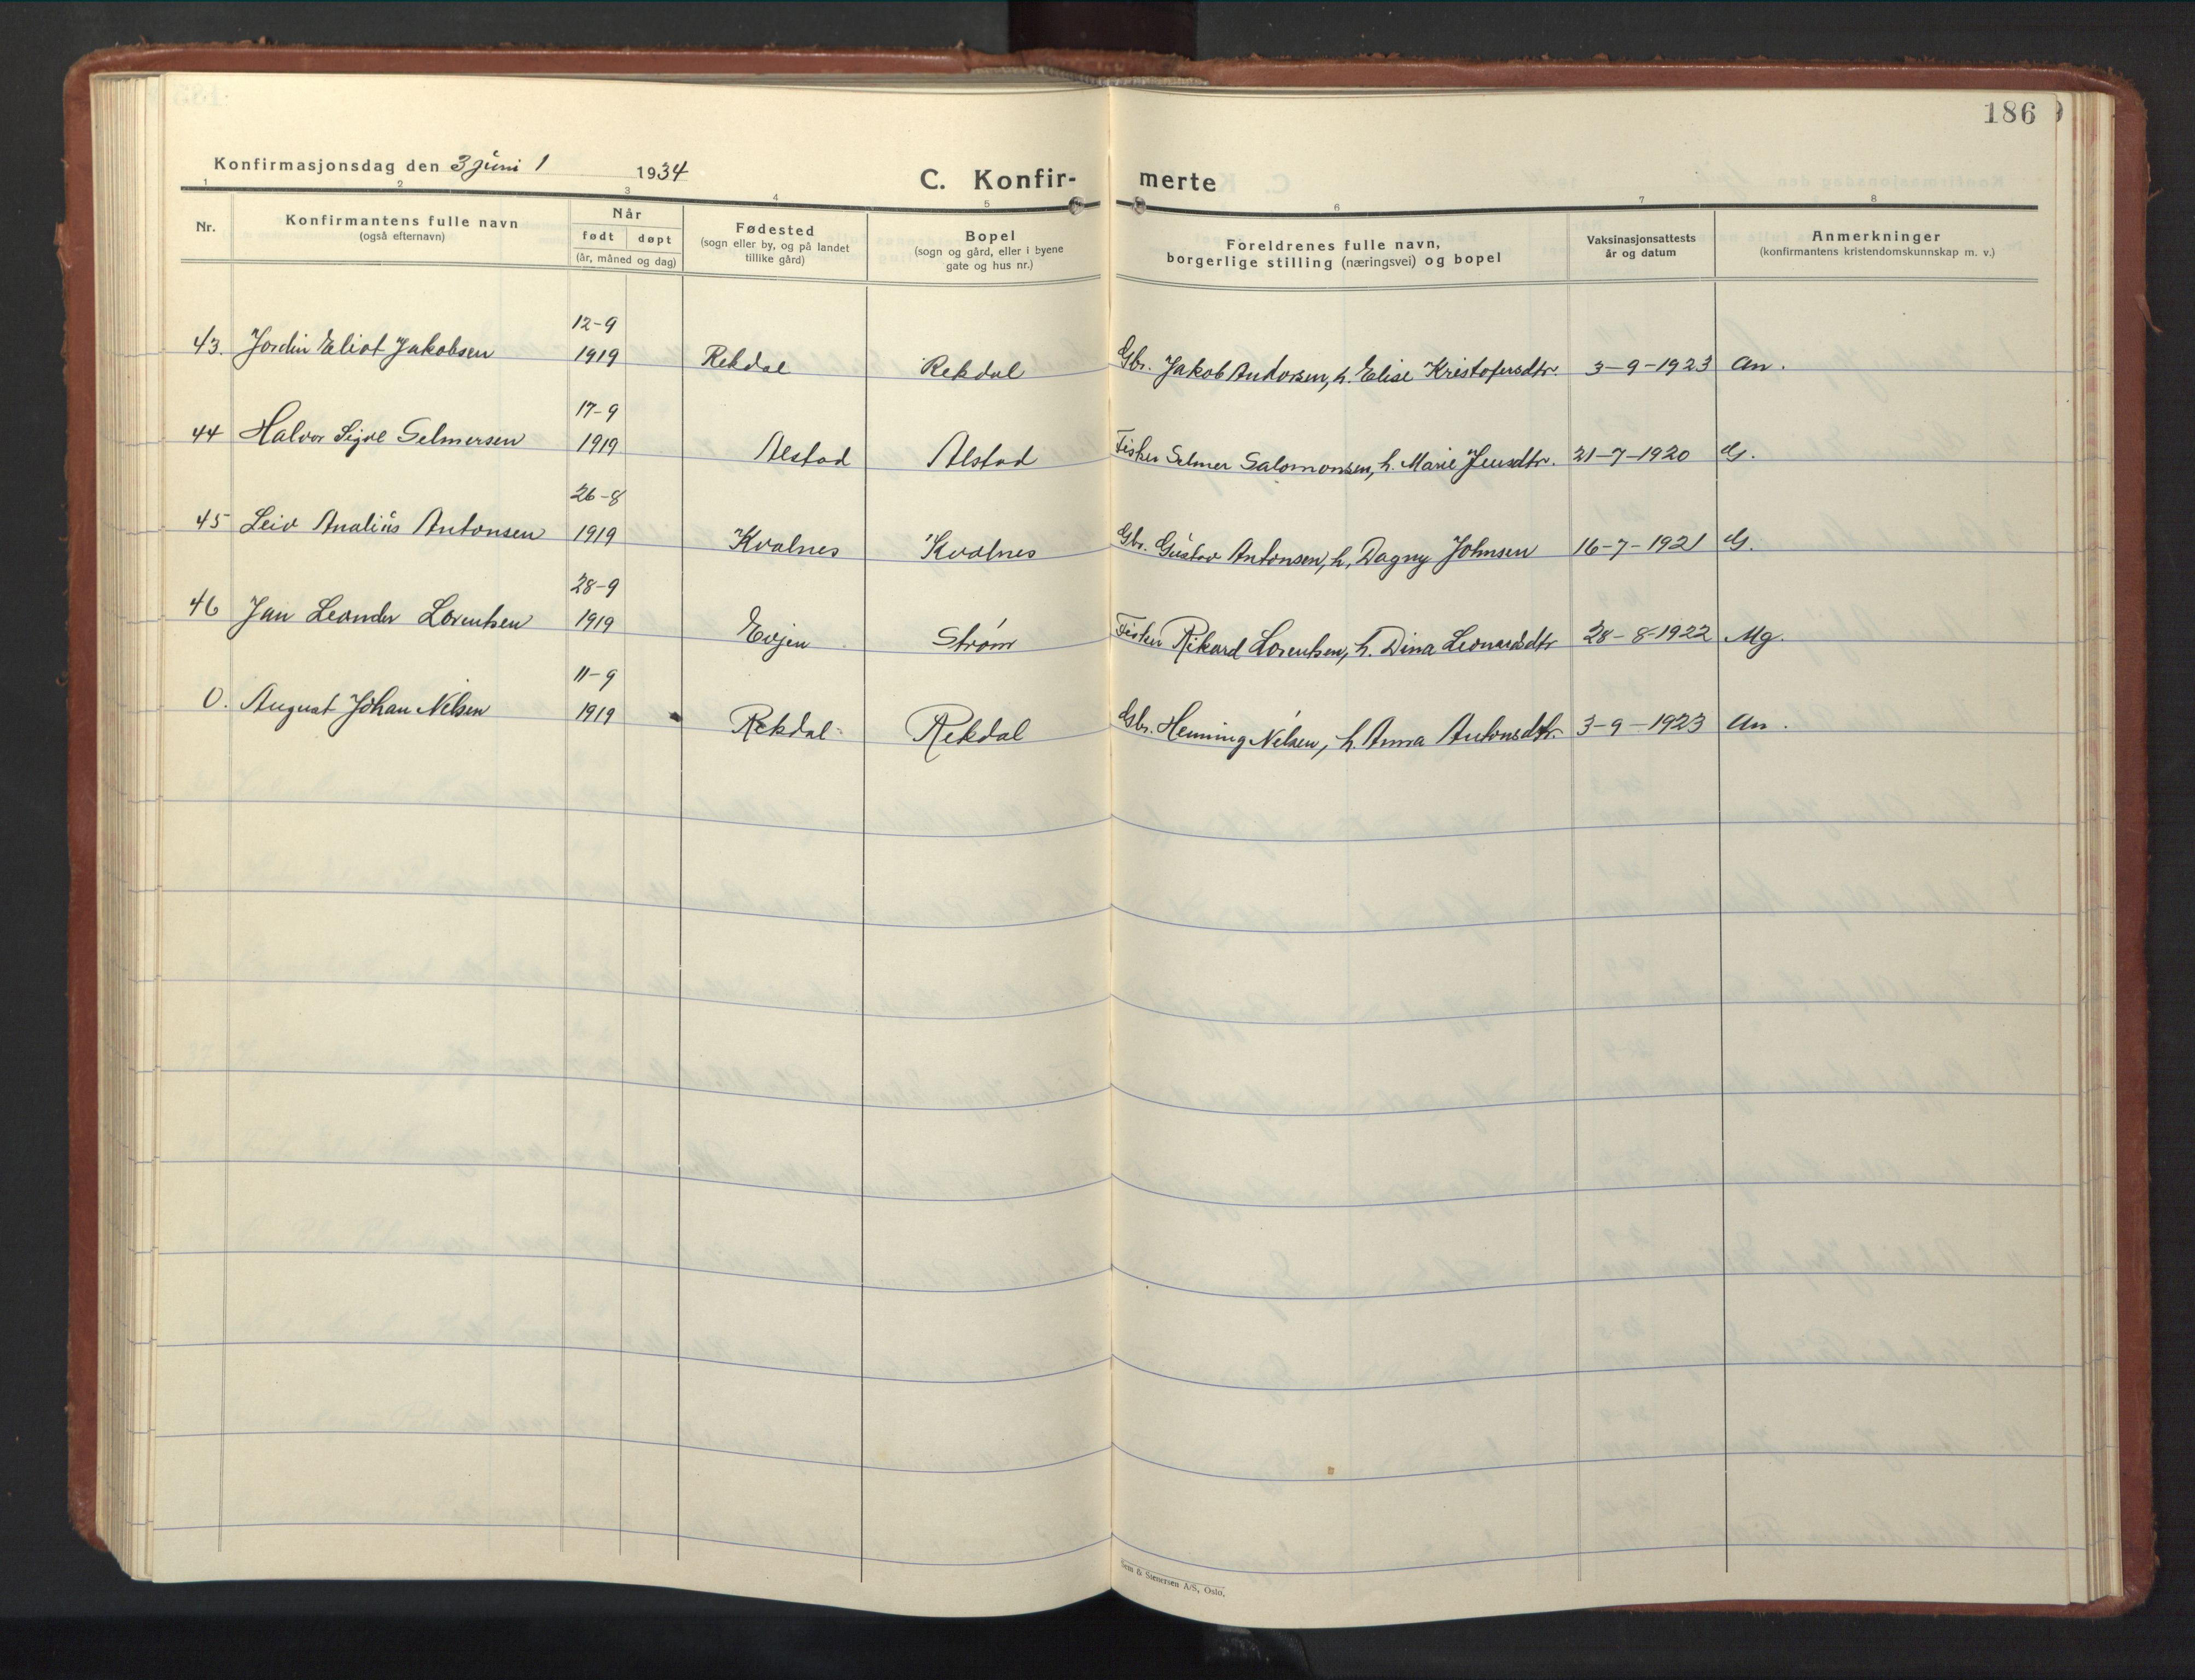 186
Konfirmasjonsdag den 3 juni 1 1934
C. Konfir- merte
1 2 3 4 5 6 7 8
Nr.
Konfirmantens fulle navn
(også efternavn)
Når
født døpt
(år, måned og dag)
Fødested
(sogn eller by, og på landet
tillike gård)
Bopel
(sogn og gård, eller i byene
gate og hus nr.)
Foreldrenes fulle navn,
borgerlige stilling (næringsvei) og bopel
Vaksinasjonsattests
år og datum
Anmerkninger
(konfirmantens kristendomskunnskap m. v.)
12-9
43. Jordin Eliot Jakobsen 1919 Rekdal Rekdal Gbr. Jakob Andorsen, h. Elise Kristofersdtr. 3-9-1923 An.
17-9
44 Halvor Sigve Selmersen 1919 Alstad Alstad Fisker Selmer Salomonsen, h. Marie Jensdtr. 21-7-1920 G.
26-8
45 Leiv Analius Antonsen 1919 Kvalnes Kvalnes Gbr. Gustav Antonsen, h. Dagny Johnsen 16-7-1921 G.
28-9
46 Jan Leander Lorentsen 1919 Evjen Strøm Fisker Rikard Lorentsen, h. Dina Leonardsdtr 28-8-1922 Mg.
11-9
0. August Johan Nilsen 1919 Rekdal Rekdal Gbr. Henning Nilsen, h. Anna Antonsdtr. 3-9-1923 An.
Sem & Stenersen A/S, Oslo.